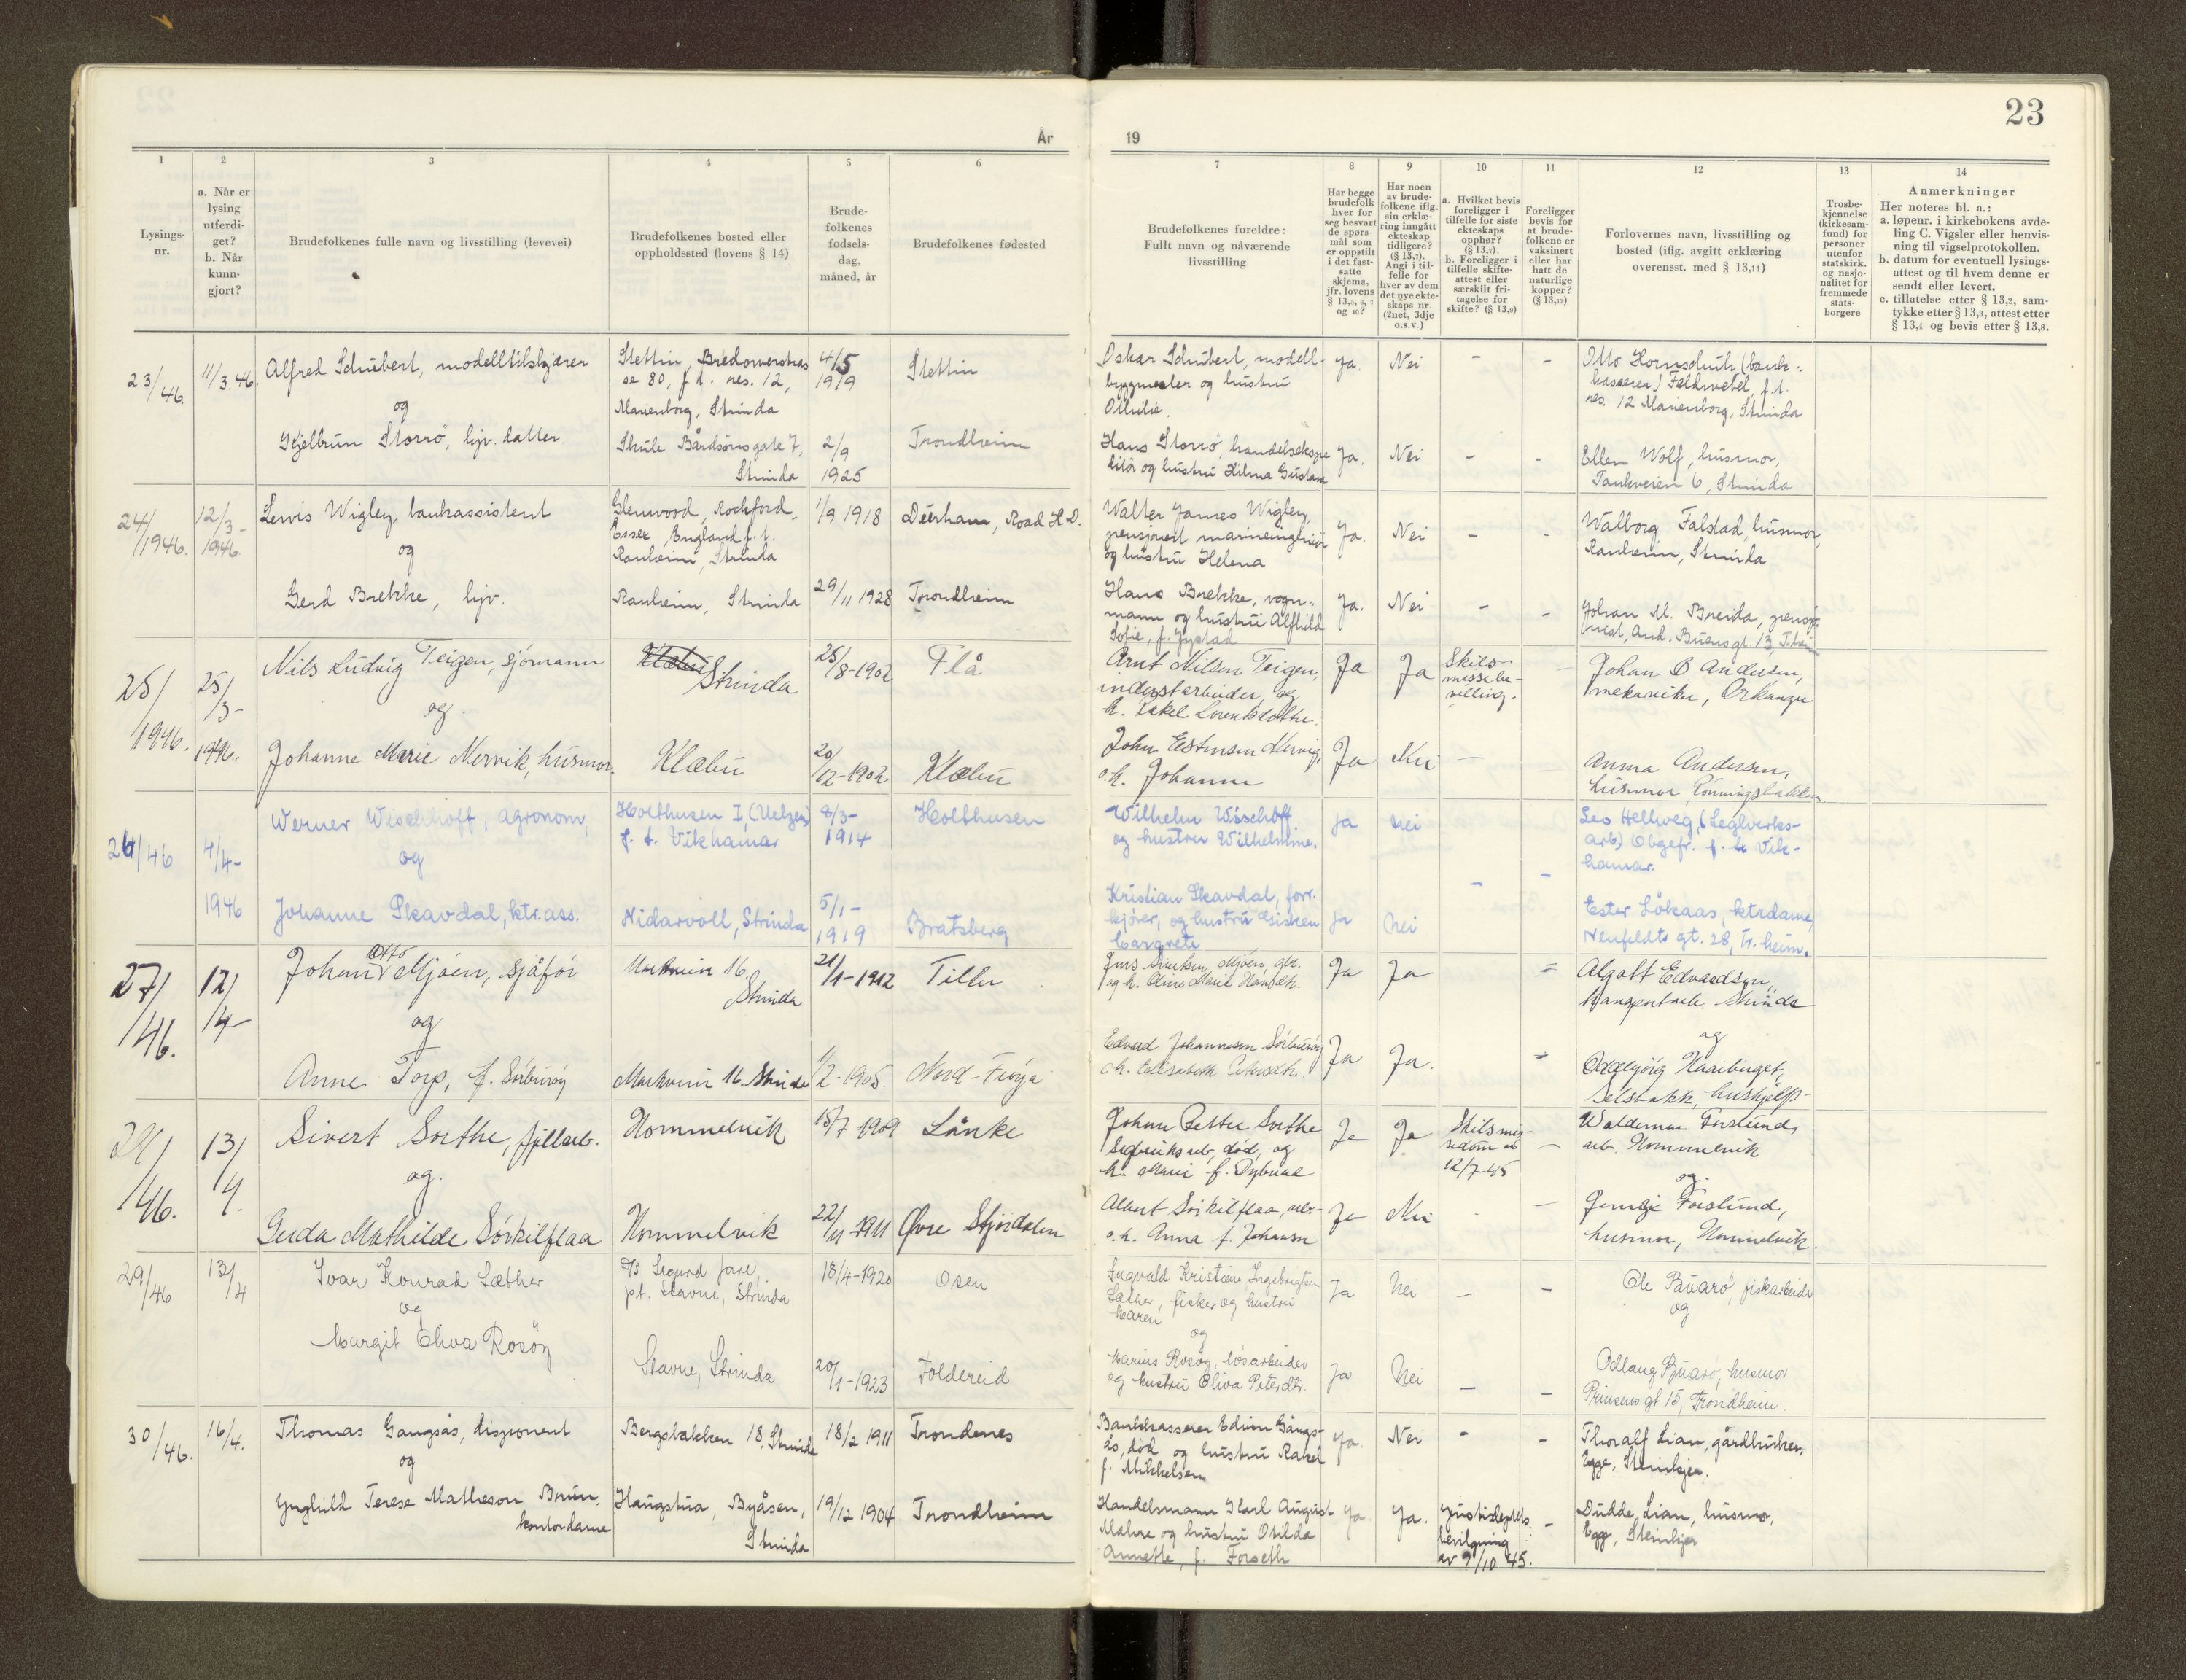 23
År
19
1
2
3
4
5
6
7
8
9
10
11
12
13
14
Lysings-
nr.
a. Når er
lysing
utferdi-
get?
b. Når
kunn-
gjort?
Brudefolkenes fulle navn og livsstilling (levevei)
Brudefolkenes bosted eller
oppholdssted (lovens § 14)
Brude-
folkenes
fødsels-
dag,
måned, år
Brudefolkenes fødested
Brudefolkenes foreldre:
Fullt navn og nåværende
livsstilling
Har begge
brudefolk
hver for
seg besvart
de spørs
mål som
er oppstilt
i det fast-
satte
skjema,
jfr. lovens
§ 13,5, 6, 7
og 10?
Har noen
av brude-
folkene iflg.
sin erklæ-
ring inngått
ekteskap
tidligere?
(§ 13,7).
Angi i til-
felle for
hver av dem
det nye ekte-
skaps nr.
(2net, 3dje
o.s.v.)
a. Hvilket bevis
foreligger i
tilfelle for siste
ekteskaps
opphør?
(§ 13,7).
b. Foreligger i
tilfelle skifte-
attest eller
særskilt fri-
tagelse for
skifte? (§ 13,9)
Foreligger
bevis for
at brude-
folkene er
vaksinert
eller har
hatt de
naturlige
kopper?
(§ 13,12)
Forlovernes navn, livsstilling og
bosted (iflg. avgitt erklæring
overensst. med § 13,11)
Trosbe-
kjennelse
(kirkesam-
fund) for
personer
utenfor
statskirk.
og nasjo-
nalitet for
fremmede
stats-
borgere
Anmerkninger
Her noteres bl. a.:
a. løpenr. i kirkebokens avde-
ling C. Vigsler eller henvis-
ning til vigselprotokollen.
b. datum for eventuell lysings-
attest og til hvem denne er
sendt eller levert.
c. tillatelse etter § 13,2, sam-
tykke etter § 13,3, attest etter
§ 13,4 og bevis etter § 13,8.
23/46. 11/3.46. Alfred Schubert, modelltilskjærer
og
Gjelbrun Storrö, hjv. datter.
Stettin, Bredowerstras
se 80, f.t. res. 12,
Marienborg, Strinda
Skule Bårdsönsgate 7,
Strinda
4/5
1919
2/9
1925
Stettin
Trondheim
Oskar Schubert, modell-
byggmester og hustru
Othilie.
Hans Storrö, handelsekspe
ditör og hustru Hilma Gustava
Ja. Nei - -
Ja. Nei - -
Otto Hornschuh, (bank-
kasserer) Feldwebel, f.t.
res. 12 Marienborg, Strinda
Ellen Wolf, husmor,
Tankveien 6, Strinda
24/1946. 12/3-1946. Lewis Wigley, bankassistent
og
Gerd Brekke, hjv.
Glenwood, Rockford,
Essex, England f.t.
Ranheim, Strinda
Ranheim, Strinda
1/9 1918
29/11 1928
Deerham, Road H.D.
Trondheim
Walter James Wigley,
pensjonert marineingeniör
og hustru Helena
Hans Brekke, vogn-
mann og hustru Alfhild
Sofie, f. Jystad
Ja. Nei - -
Ja. Nei - -
Walborg Falstad, husmor,
Ranheim, Strinda
Johan M. Breida, pensjo
nist, And. Buens gt. 13, T.heim
25/1946. 25/3-1946. Nils Ludvig Teigen, sjömann
og
Johanne Marie Nervik, husmor.
Klæbu Strinda
Klæbu
25/8-1902
20/12-1902
Flå
Klæbu
Arnt Nilsen Teigen,
industarbeider, og
h. Rakel Lorentsdotter.
John Estensen Nervig,
o.h. Johanna
Ja Ja Skils-
missebe-
villing. -
Ja Nei - -
Johan O. Andersen,
mekaniker, Orkanger
Anna Andersen,
husmor, Rönningsbakken.
26/46 4/4-1946 Werner Wischhoff, agronom,
og
Johanne Skavdal, ktr.ass.
Holthusen I, (Uelzen)
f. t. Vikhamar
Nidarvoll, Strinda
8/3-
1914
5/1-
1919
Holthusen
Bratsberg
Wilhelm Wischoff
og hustru Wilhelmine.
Kristian Skavdal, forr.
kjörer, og hustru Gisken
Margrete
Ja Nei
Ja Nei - -
Leo Hellweg, (Teglverks-
arb.) Obgefr. f. t. Vik-
hamar.
Ester Lökaas, ktrdame,
Neufeldts gt. 28, Tr.heim.
27/46. 12/4- Johan Otto Mjöen, sjåför
og
Anne Torp, f. Sörburöy
Markveien 16.
Strinda
Markveien 16. Strinda
21/1-1912
1/2-1905.
Tiller
Nord-Fröya
Jens Mjöen, gbr.
og h. Oline Marie Hansdtr.
Edvard Johannessen Sörburöy
o.h. Elisabeth Petersdtr.
Ja Ja =
Ja Ja. =
Algott Edvardsen,
transportarb. Strinda
og
Oddbjörg Haarberget,
Selsbakk, hushjelp-
28/46. 13/4. Sivert Sorthe, fjellarb.
og.
Gerda Mathilde Sörkilflaa
Hommelvik
Hommelvik
18/7-1909
22/11-1911
Lånke
Øvre Stjördalen
Johan Petter Sorthe
Sagbruksarb, död, og
h. Marie f. Dybvad
Albert Sörkilflaa, arb.-
o.h. Anna f. Johansen
Ja Ja Skilsmis-
sedom av
12/7-45 -
Ja Nei - -
Waldemar Forslund,
arb. Hommelvik
og.
Forslund,
husmor, Hommelvik.
29/46 13/4 Ivar Konrad Sæther
og
Margit Oliva Rosöy
D/S Sigurd Jarl,
pt. Stavne, Strinda
Stavne, Strinda
18/4-1920
20/1-1923
Osen
Foldereid
Ingvald Kristian Ingebrigtsen
Sæther, fisker og hustru
Maren
og
Marius Rosöy, lösarbeider
og hustru Oliva Petersdtr.
Ja Nei - -
Ja Nei - -
Ole Buarö, fiskarbeider
og
Odlaug Buarö, husmor
Prinsens gt 15, Trondheim.
30/46. 16/4. Thomas Gangsås, disponent
og
Ynghild Terese Matheson Bruun,
kontordame
Bergsbakken 18, Strinda
Haugstua, Byåsen,
Strinda
18/2 1911
19/12 1904
Trondenes
Trondheim
Bankkasserer Edvin Gangs-
ås, död og hustru Rakel
f. Mikkelsen
Handelsmann Karl August
Malne og hustru Otilda
Annette, f. Forseth
Ja. Nei - -
Ja. Ja. Justisdeptets
bevilgning
av 9/10 45. -
Thoralf Lian, gårdbruker,
Egge, Steinkjer.
Dudde Lian, husmor,
Egge, Steinkjer